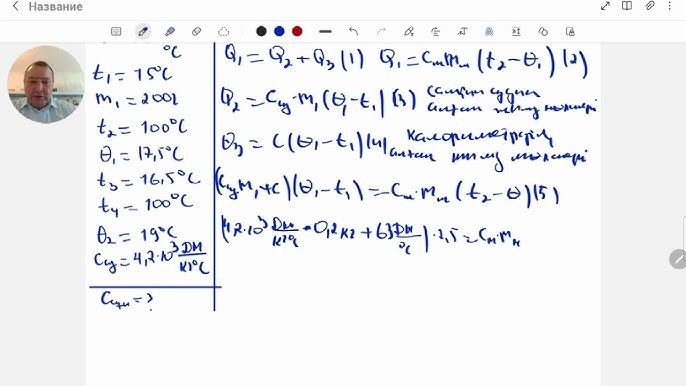 Название
°C
t₁ = 15°C
m₁ = 200г
t₂ = 100°C
θ₁ = 17,5°C
t₃ = 16,5°C
t₄ = 100°C
θ₂ = 19°C
Cсу = 4,2·10³ Дж/кг°C
Q₁ = Q₂ + Q₃ (1) Q₁ = Cм Mм (t₂ − θ₁) (2)
Q₂ = Cсу · m₁ (θ₁ − t₁) (3) салқын судың
алған жылу мөлшері
Q₃ = C (θ₁ − t₁) (4) калориметрдің
алған жылу мөлшері
(Cсу m₁ + C) (θ₁ − t₁) = Cм · Mм (t₂ − θ) (5)
(4,2·10³ Дж/кг°C · 0,2кг + 63 Дж/°C) · 2,5 = Cм · Mм